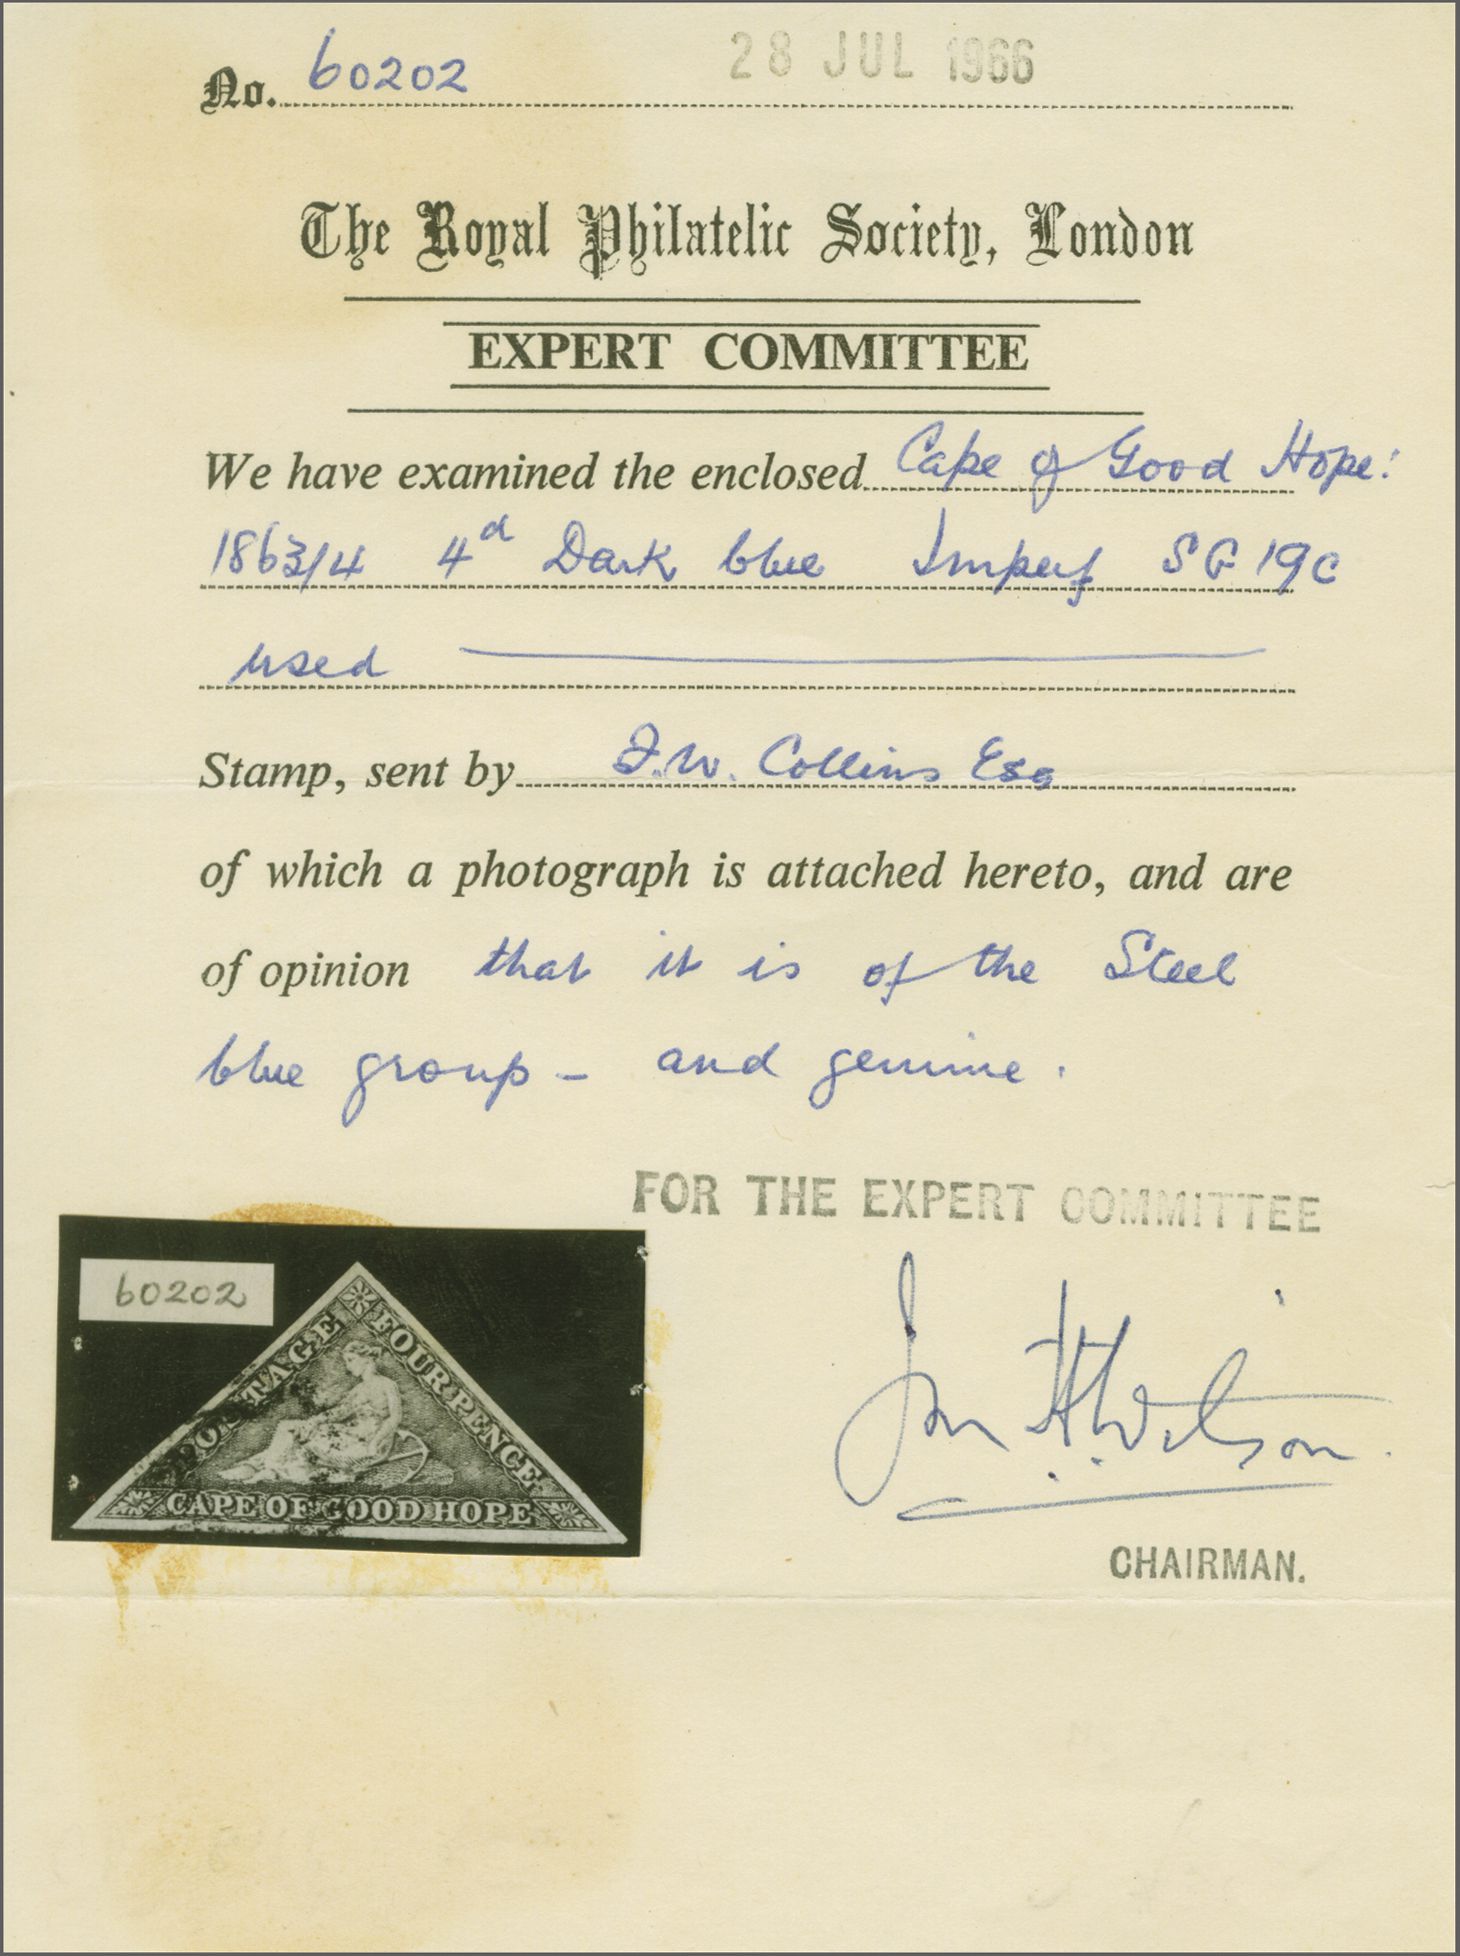 No. 60202 28 JUL 1966
The Royal Philatelic Society, London
EXPERT COMMITTEE
We have examined the enclosed Cape of Good Hope:
1863/4 4d Dark blue Imperf SG 19c
used
Stamp, sent by F.W. Collins Esq
of which a photograph is attached hereto, and are
of opinion that it is of the Steel
blue group – and genuine.
FOR THE EXPERT COMMITTEE
60202
POSTAGE
FOUR PENCE
CAPE OF GOOD HOPE
John H. Wilson.
CHAIRMAN.